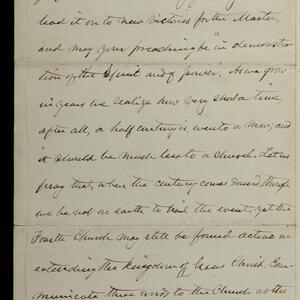 lead it on to new victories for the Master,
and may your preaching be "in demonstra-
tion of the Spirit and of power." As we grow
in years we realize how very short a time,
after all, a half century is even to a man; and
it should be much less to a church. Let us
pray that, when the century comes around, though
we be not on earth to hail the event, yet the
Fourth Church may still be found active in
extending the Kingdom of Jesus Christ. Com-
municate these words to the Church as the